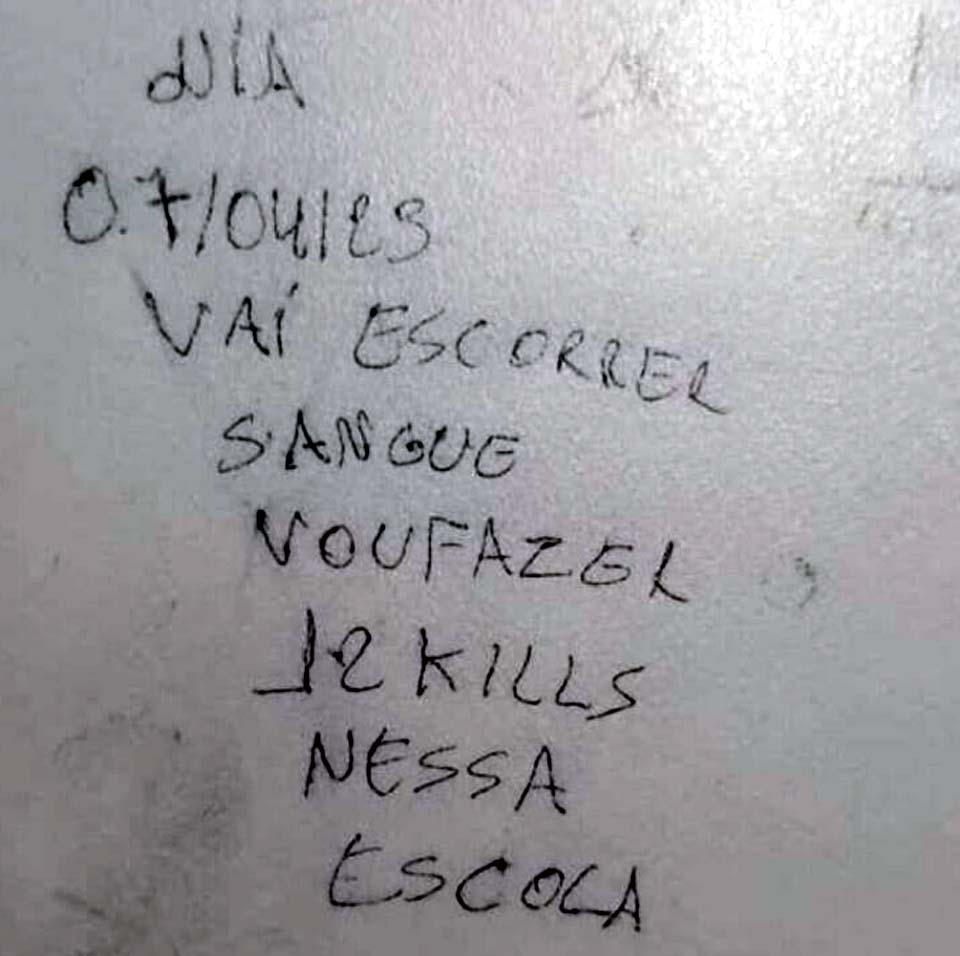 DIA
07/04/23
VAÍ ESCORRER
SANGUE
VOU FAZER
12 KILLS
NESSA
ESCOLA